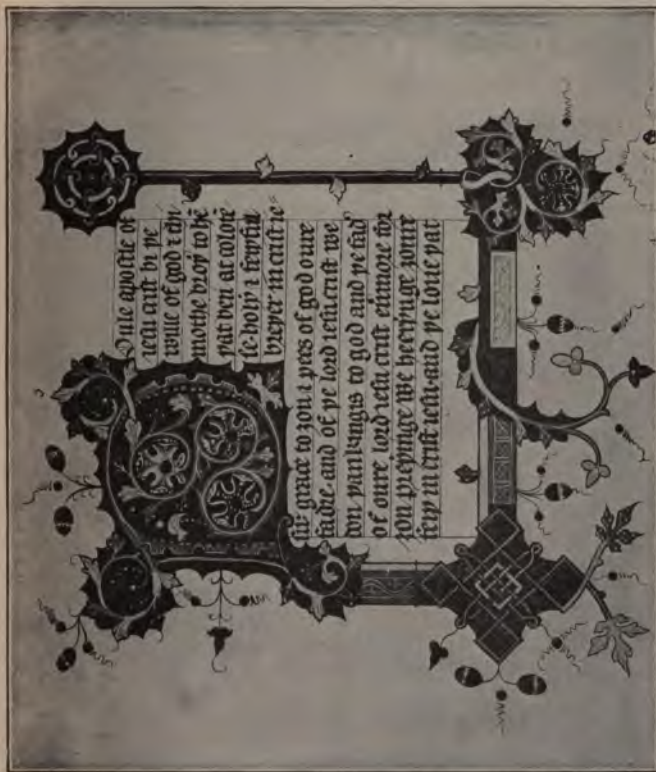 Poule apostle of
iesu crist bi þe
wille of god & thi
mothe broþ to hē
þat ben at colose
se· hooly & feiþful
breþer in crist ie
su· grace to ȝou & pees of god oure
fadir· and of þe lord iesu crist we
don þankingis to god and þe fad'
of oure lord iesu crist euermore for
ȝou preyinge we heeringe ȝoure
feiþ in crist iesu· and þe loue þat